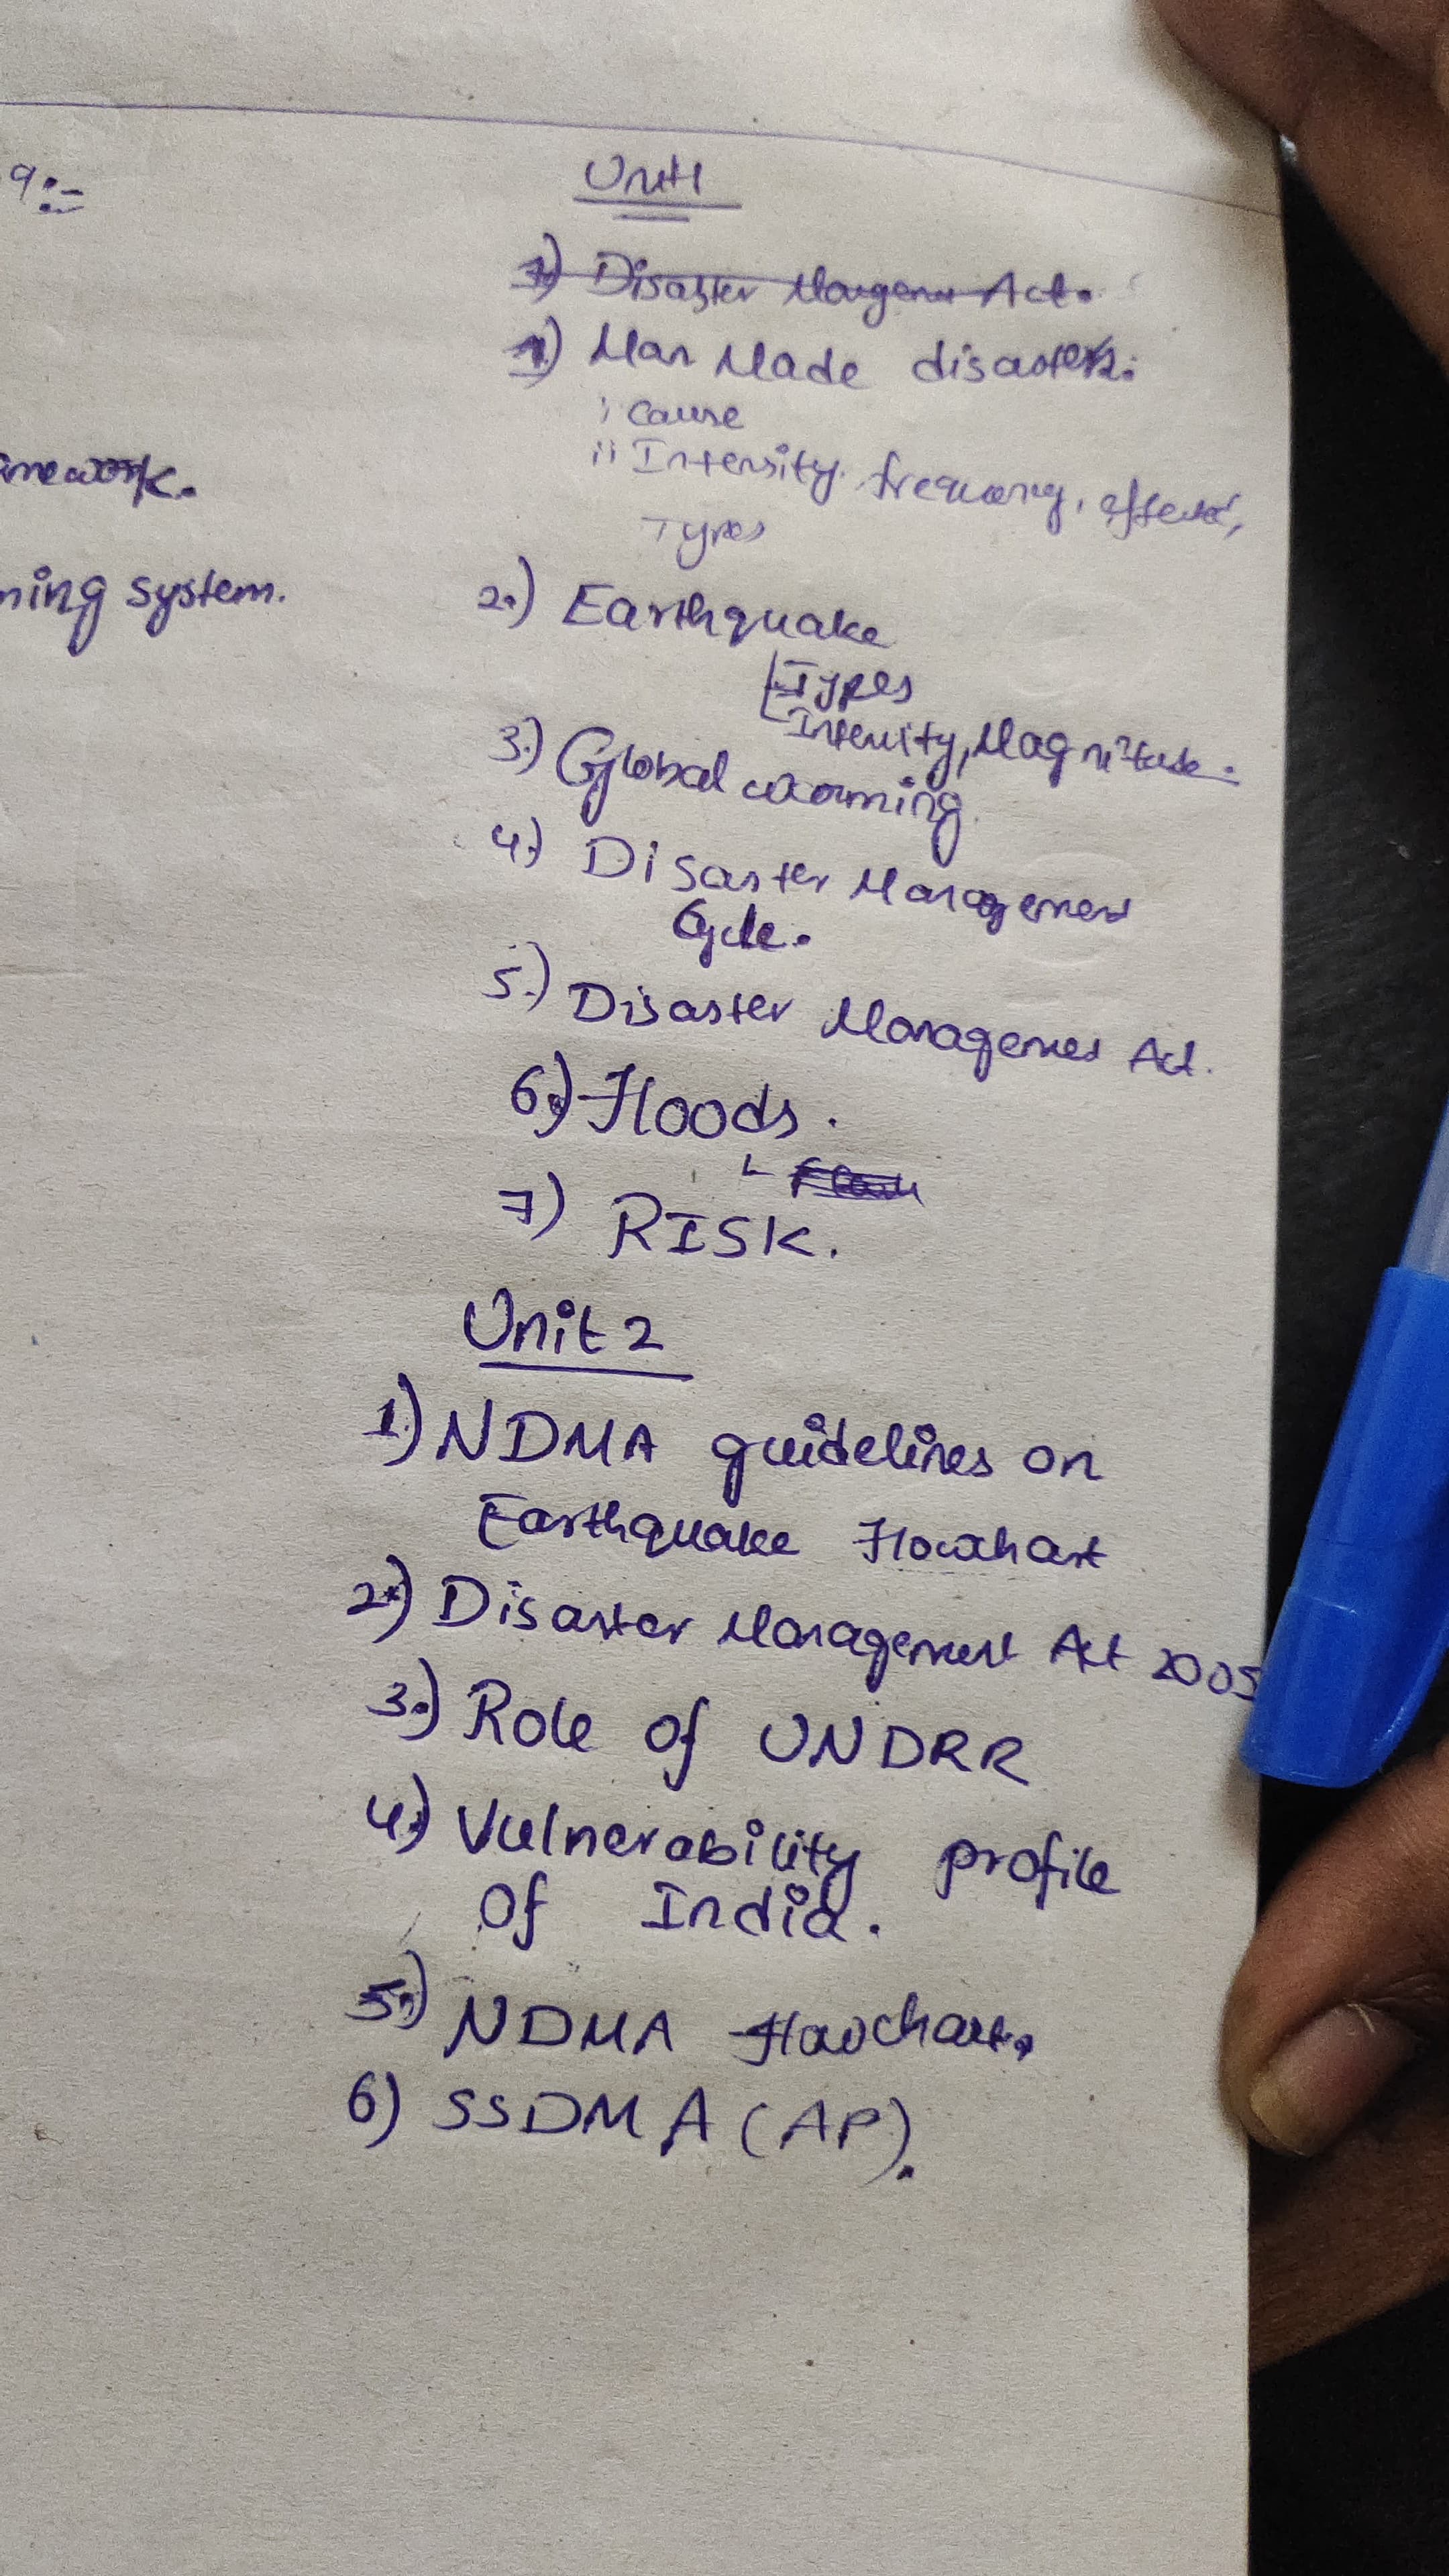 9:-
Unit 1
1) Disaster Act.
1) Man Made disaster.
i cause
ii Intensity, frequency, effects,
Types
2.) Earthquake
Types
Intensity, Magnitude.
3.) Global warming
4.) Disaster Management
Cycle.
5.) Disaster Management Act.
6.) Floods.
7) RISK.
Unit 2
1.) NDMA guidelines on
Earthquake Flowchart
2.) Disaster Management Act 2005
3.) Role of UNDRR
4.) Vulnerability profile
of India.
5.) NDMA Flowchart.
6) SSDMA (AP).
mework.
ning system.